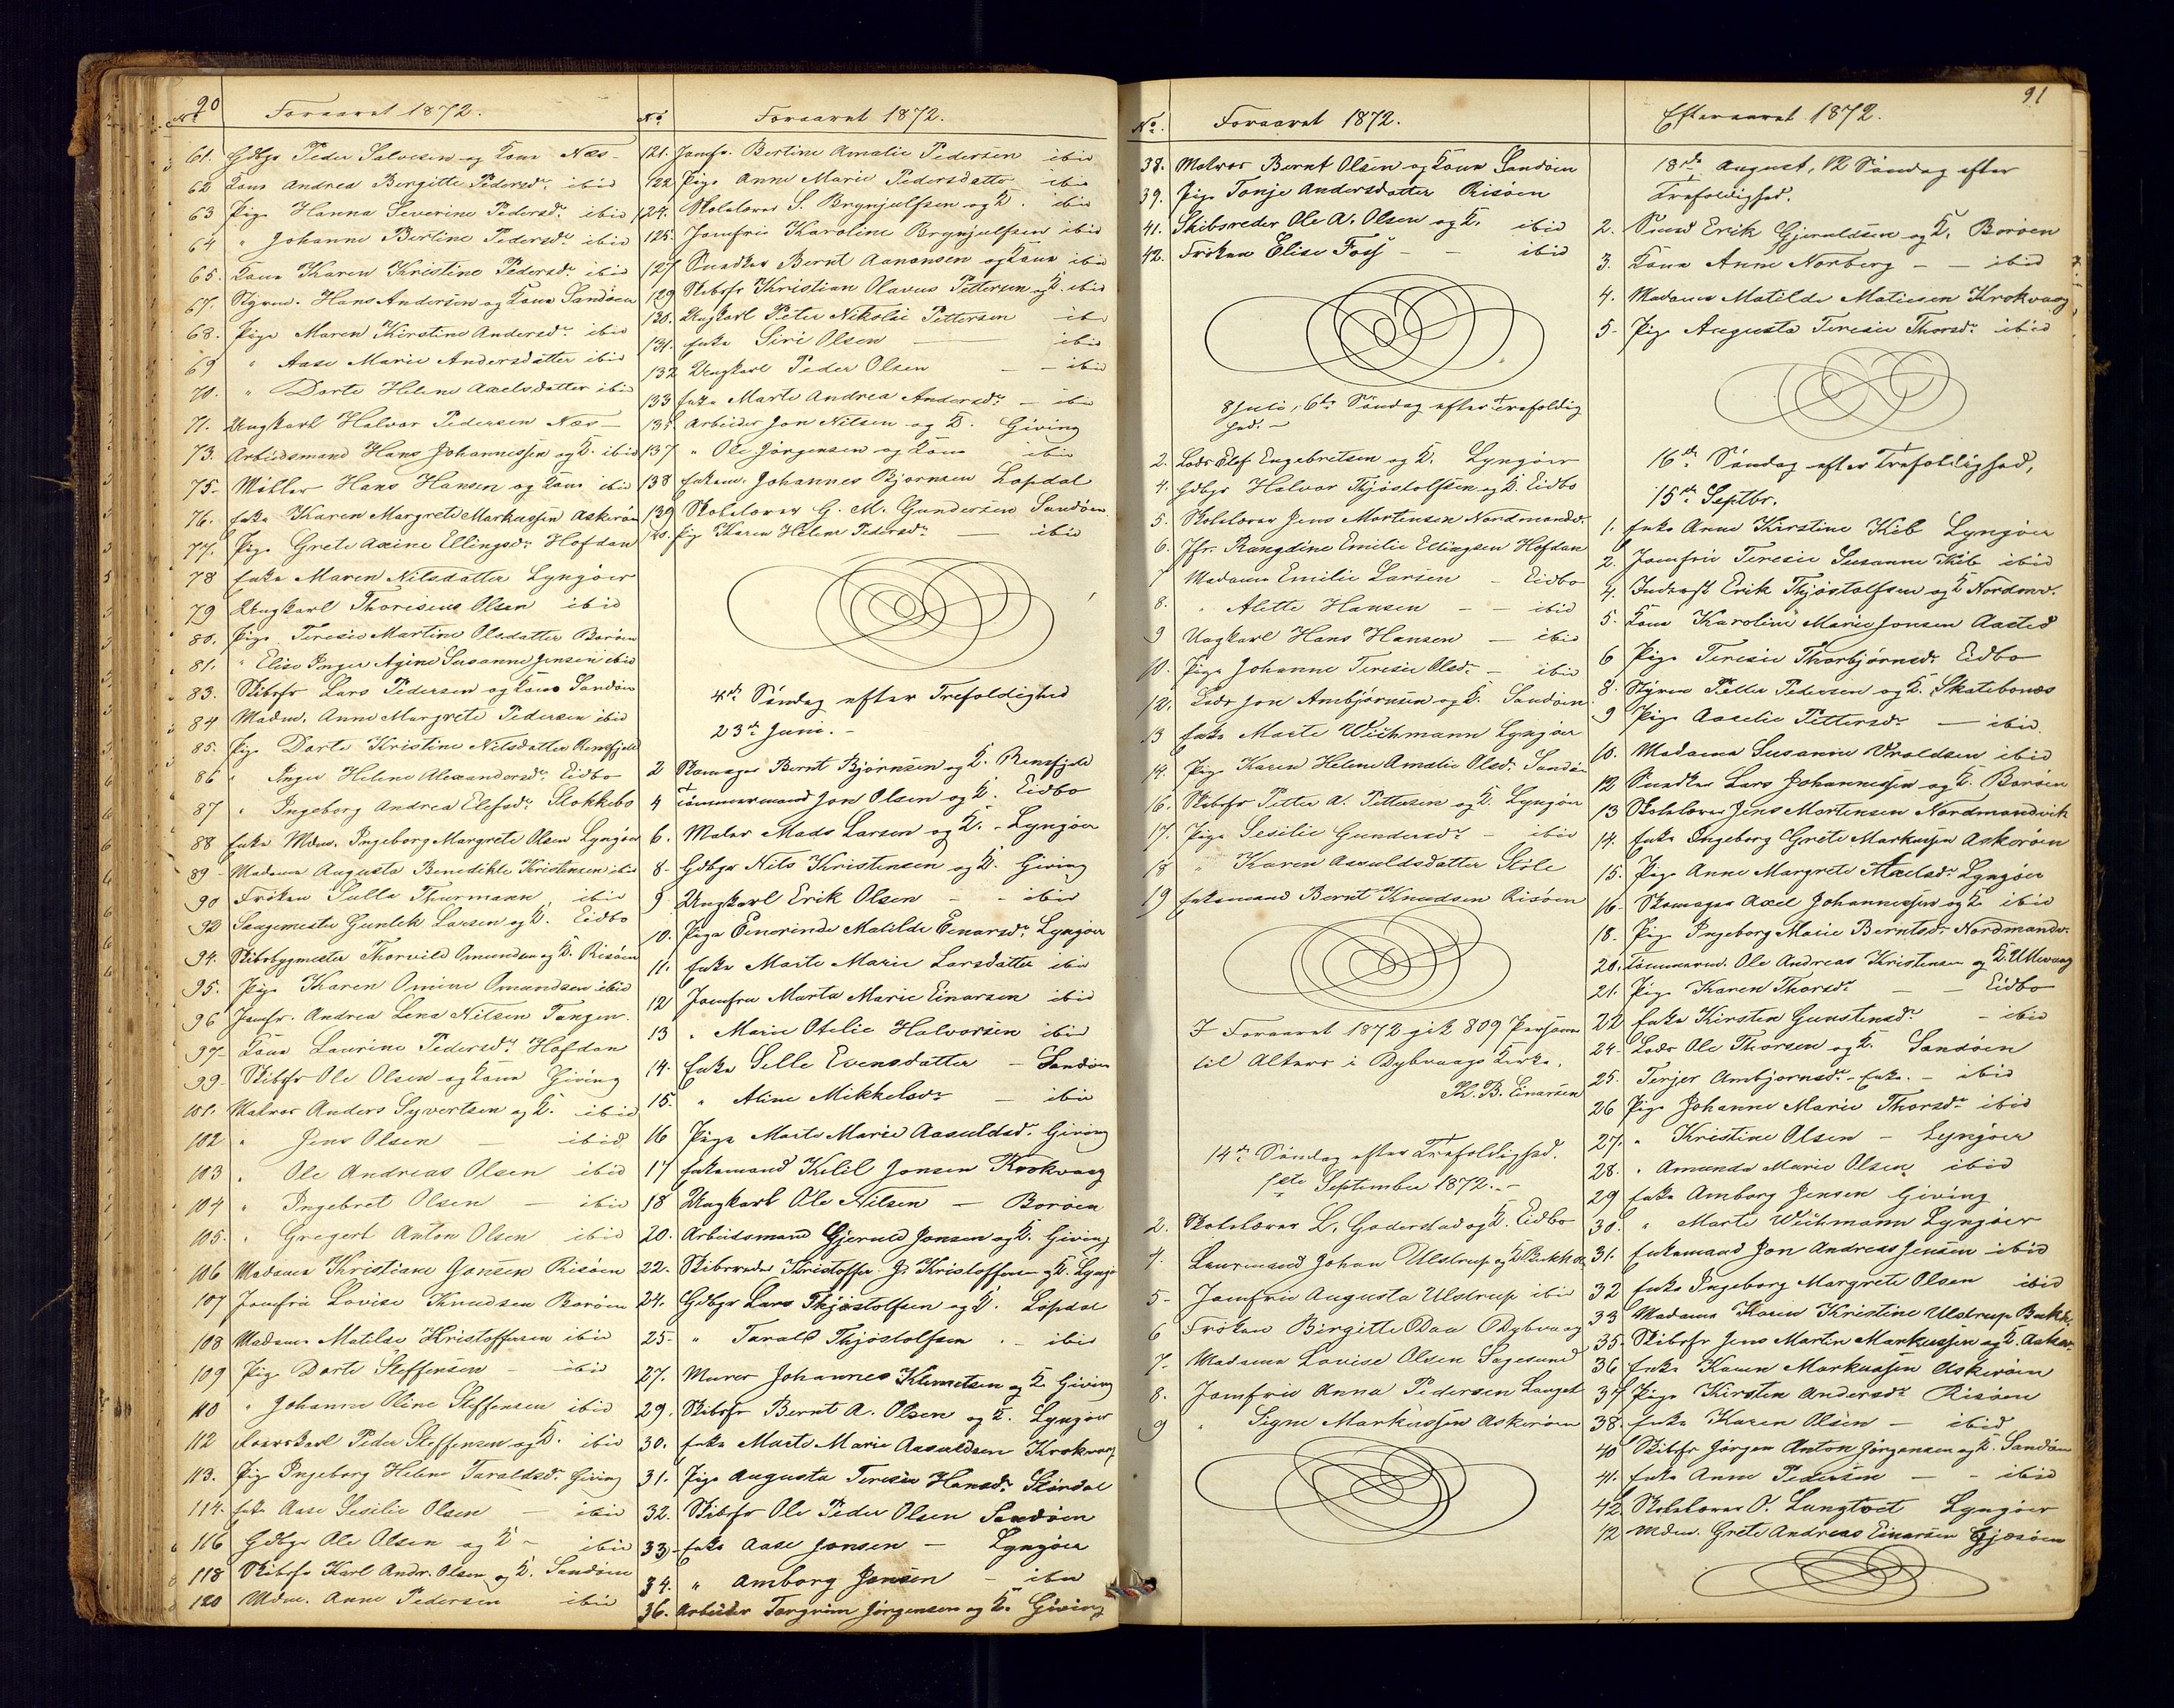 90
No Foraaret 1872.
61. Gdbgr Peder Salvesen og Kone Næs
62 Kone Andrea Bergitte Pedersdr. ibid
63 Pige Hanna Severine Pedersdr. ibid
64 " Johanne Bertine Pedersdr. ibid
65. Kone Karen Kristine Pedersdr. ibid
67. Styrm. Hans Andersen og Kone Sandøen
68. Pige Maren Kirstine Andersdr. ibid
69 " Aase Marie Andersdatter ibid
70. " Dorte Helene Axelsdatter ibid
71. Ungkarl Halvor Pedersen Næs
73. Arbeidsmand Hans Johannessen og K. ibid
75. Møller Hans Hansen og Kone ibid
76. Enke Karen Margrete Markussen Askerøen
77. Pige Grete Axine Ellingsdr. Hofdan
78 Enke Maren Nilsdatter Lyngøer
79 Ungkarl Thorisius Olsen ibid
80. Pige Teresie Martine Olsdatter Borøen
81. " Elise Inger Agine Susanne Jensen ibid
83. Skibsfr Lars Pedersen og Kone Sandøen
84 Madm. Anne Margrete Pedersen ibid
85. Pige Dorte Kristine Nilsdatter Rensfjeld
86 " Inger Helene Alexandersdr. Eidbo
87 " Ingeborg Andrea Elefsdr. Stokkebo
88 Enke Mdm. Ingeborg Margrete Olsen Lyngøer
89 Madama Augusta Benedikte Kristensen ibid
90 Frøken Julla Thurmann ibid
92 Saugmester Gunlek Larsen og K. Eidbo
94. Skibsbygmester Thorvild Omundsen og K. Risøen
95. Pige Karen Omine Omundsen ibid
96 Jomfr. Andrea Lena Nilsen Tangen
97 Kone Laurine Pedersdr. Hofdan
99. Skibsfr Ole Olsen og Kone Giving
101. Matros Anders Syvertsen og K. ibid
102 " Jens Olsen — ibid
103 " Ole Andreas Olsen ibid
104 " Ingebret Olsen — ibid
105. " Gregert Anton Olsen ibid
106 Madama Kristiane Jansen Risøen
107 Jomfru Lovise Knudsen Borøen
108 Madame Matilde Kristoffersen ibid
109 Pige Dorte Steffensen — ibid
110 " Johanne Oline Steffensen ibid
112 Peder Steffensen og K. ibid
113. Pige Ingeborg Helene Taraldsdr. Giving
114. Enke Aase Sesilie Olsen — ibid
116 Gdbgr Ole Olsen og K — ibid
118 Skibsfr Karl Andr. Olsen og K. Sandøen
120 Mdm. Anne Pedersen ibid
No Foraaret 1872.
121. Jomfr. Bertine Amalie Pedersen ibid
122. Pige Anne Marie Pedersdatter ibid
124. Skolelærer S. Brynjulfsen og K. ibid
125. Jomfru Karoline Brynjulfsen ibid
127 Snedker Bernt Aanonsen og Kone ibid
129 Skibsfr Kristian Olavus Pettersen og K. ibid
130. Ungkarl Peter Nikolai Pettersen ibid
131. Enke Siri Olsen — ibid
132 Ungkarl Peder Olsen — — ibid
133 Enke Marte Andrea Andersdr. — ibid
135. Arbeider Jon Nilsen og K. Giving
137 " Ole Jørgensen og Kone ibid
138 Enkem. Johannes Bjørnsen Lopdal
139 Skolelærer G. M. Gundersen Sandøen
Pig Karen Helene Pedersdr. — ibid
4de Søndag efter Trefoldighed
23de Juni.
2 Skomager Bernt Bjørnsen og K. Rensfjeld
4 Tømmermand Jon Olsen og K. Eidbo
6. Maler Mads Larsen og K. — Lyngøer
8. Gdbgr Nils Kristensen og K. Giving
9 Ungkarl Erik Olsen — — ibid
10. Pige Einorinde Matilde Einarsdr. Lyngøer
11. Enke Marte Marie Larsdatter ibid
12 Jomfru Marta Marie Einarsen ibid
13 " Marie Otelie Halvorsen ibid
14. Enke Sille Evensdatter — Sandøen
15. " Aline Mikkelsdr. — ibid
16 Pige Marte Marie Aasuldsd. Giving
17 Enkemand Kitil Jonsen Krokvaag
18 Ungkarl Ole Nilsen — Borøen
20. Arbeidsmand Gjeruld Jonsen og K. Giving
22. Skibsreder Kristoffer G. Kristoffersen og K. Lyngø
24. Gdbgr Lars Thjøstolfsen og K. Lopdal
25. " Tarald Thjøstolfsen . ibid
27. Murer Johannes Klemetsen og K. Giving
29. Skibsfr Bernt A. Olsen og K. Lyngøer
30. Enke Marte Marie Aasuldsen Krokvaag
31. Pige Augusta Teresie Hansdr. Størdal
32. Skibsfr Ole Peder Olsen Sandøen
33 Enke Aase Jonsen — Lyngøer
34. " Amborg Jensen — ibid
36. Arbeider Torgrim Jørgensen og K. Giving
91
No. Foraaret 1872.
38. Matros Bernt Olsen og Kone Sandøen
39. Pige Tonje Andersdatter Risøen
41. Skibsreder Ole A. Olsen og K. ibid
42. Frøken Elise Foss — — ibid
8 Juli, 6te Søndag efter Trefoldig
hed. —
2. Lods Elef Engebretsen og K. Lyngøer
4. Gdbgr Halvor Thjøstolfsen og K. Eidbo
5. Skolelærer Jens Mortensen Nordmandv.
6. Jfr. Rangdine Emilie Ellingsen Hofdan
7 Madame Emilie Larsen — Eidbo
8. " Alette Hansen — — ibid
9 Ungkarl Hans Hansen — ibid
10. Pige Johanne Teresie Olsdr. — ibid
12. Lods Jon Ambjørnsen og K. Sandøen
13 Enke Marte Wichmann Lyngøer
14. Pige Karen Helene Amalie Olsdr. Sandøen
16. Skibsfr Petter A. Pettersen og K. Lyngøer
17. Pige Sesilie Gundersdr. — ibid
18 " Karen Aasuldsdatter Støle
19 Enkemand Bernt Knudsen Risøen
I Foraaret 1872 gik 809 Personer
til Alters i Dybvaags Kirke.
Th. B. Einarsen
14de Søndag efter Trefoldighed.
1ste September 1872. —
2. Skolelærer L. Goderstad og K. Eidbo
4. Johan Ulstrup og K. Bakke
5. Jomfru Augusta Ulstrup ibid
6 Frøken Birgitte Daa Dybvaag
7. Madame Lovise Olsen Sagesund
8. Jomfru Anna Pedersen Lauget
9 " Signe Markussen Askerøen
Efteraaret 1872.
18de August, 12 Søndag efter
Trefoldighed.
2. Smed Erik Gjeruldsen og K. Borøen
3. Kone Anne Norberg — — ibid
4. Madame Matilde Matiesen Krokvaag
5. Pige Augusta Teresie Thorsdr. ibid
16de Søndag efter Trefoldighed,
15de Septbr.
1. Enke Anne Kirstine Kib Lyngøer
2. Jomfru Teresie Susanne Kib ibid
4. Erik Thjøstolfsen og K Nordmv.
5. Kone Karoline Marie Jonsen Aasted
6 Pige Teresie Thorbjørnsdr. Eidbo
8. Styrm Peller Pedersen og K. Skatebonæs
9 Pige Aaselie Pettersdr. — ibid
10. Madame Susanne Uroldsen ibid
12 Snedker Lars Johannessen og K. Borøen
13 Skolelærer Jens Mortensen Nordmandvik
14. Enke Ingeborg Grete Markussen Askerøen
15. Pige Anne Margrete Axelsdr. Lyngøer
16. Skomager Axel Johannessen og K ibid
18. Pige Ingeborg Marie Berntsdr. Nordmandv.
20. Tømmerm. Ole Andreas Kristensen og K. Utlevaag
21. Pige Karen Thorsdr. — — Eidbo
22 Enke Kirsten Gunstensdr. — ibid
24. Lods Ole Thorsen og K. Sandøen
25. Terjer Ambjørnsdr. Enke. — ibid
26 Pige Johanne Marie Thorsdr. ibid
27. " Kristine Olsen — Lyngøer
28. " Amanda Marie Olsen ibid
29 Enke Amborg Jensen Giving
30. " Marte Wichmann Lyngøer
31. Enkemand Jon Andreas Jensen ibid
32 Enke Ingeborg Margrete Olsen ibid
33 Madame Karen Kristine Ulstrup Bakke
35. Skibsfr Jens Martin Markussen og K. Askerø
36 Enke Karen Markussen Askerøen
37 Pige Kirsten Andersdr. Risøen
38. Enke Karen Olsen — ibid
40 Skibsfr Jørgen Anton Jørgensen og K. Sandøen
41. Enke Anne Pedersen — — ibid
42. Skolelærer O. Langtvet Lyngøer
12 Mdm. Grete Andreas Einarsen Gjesøen